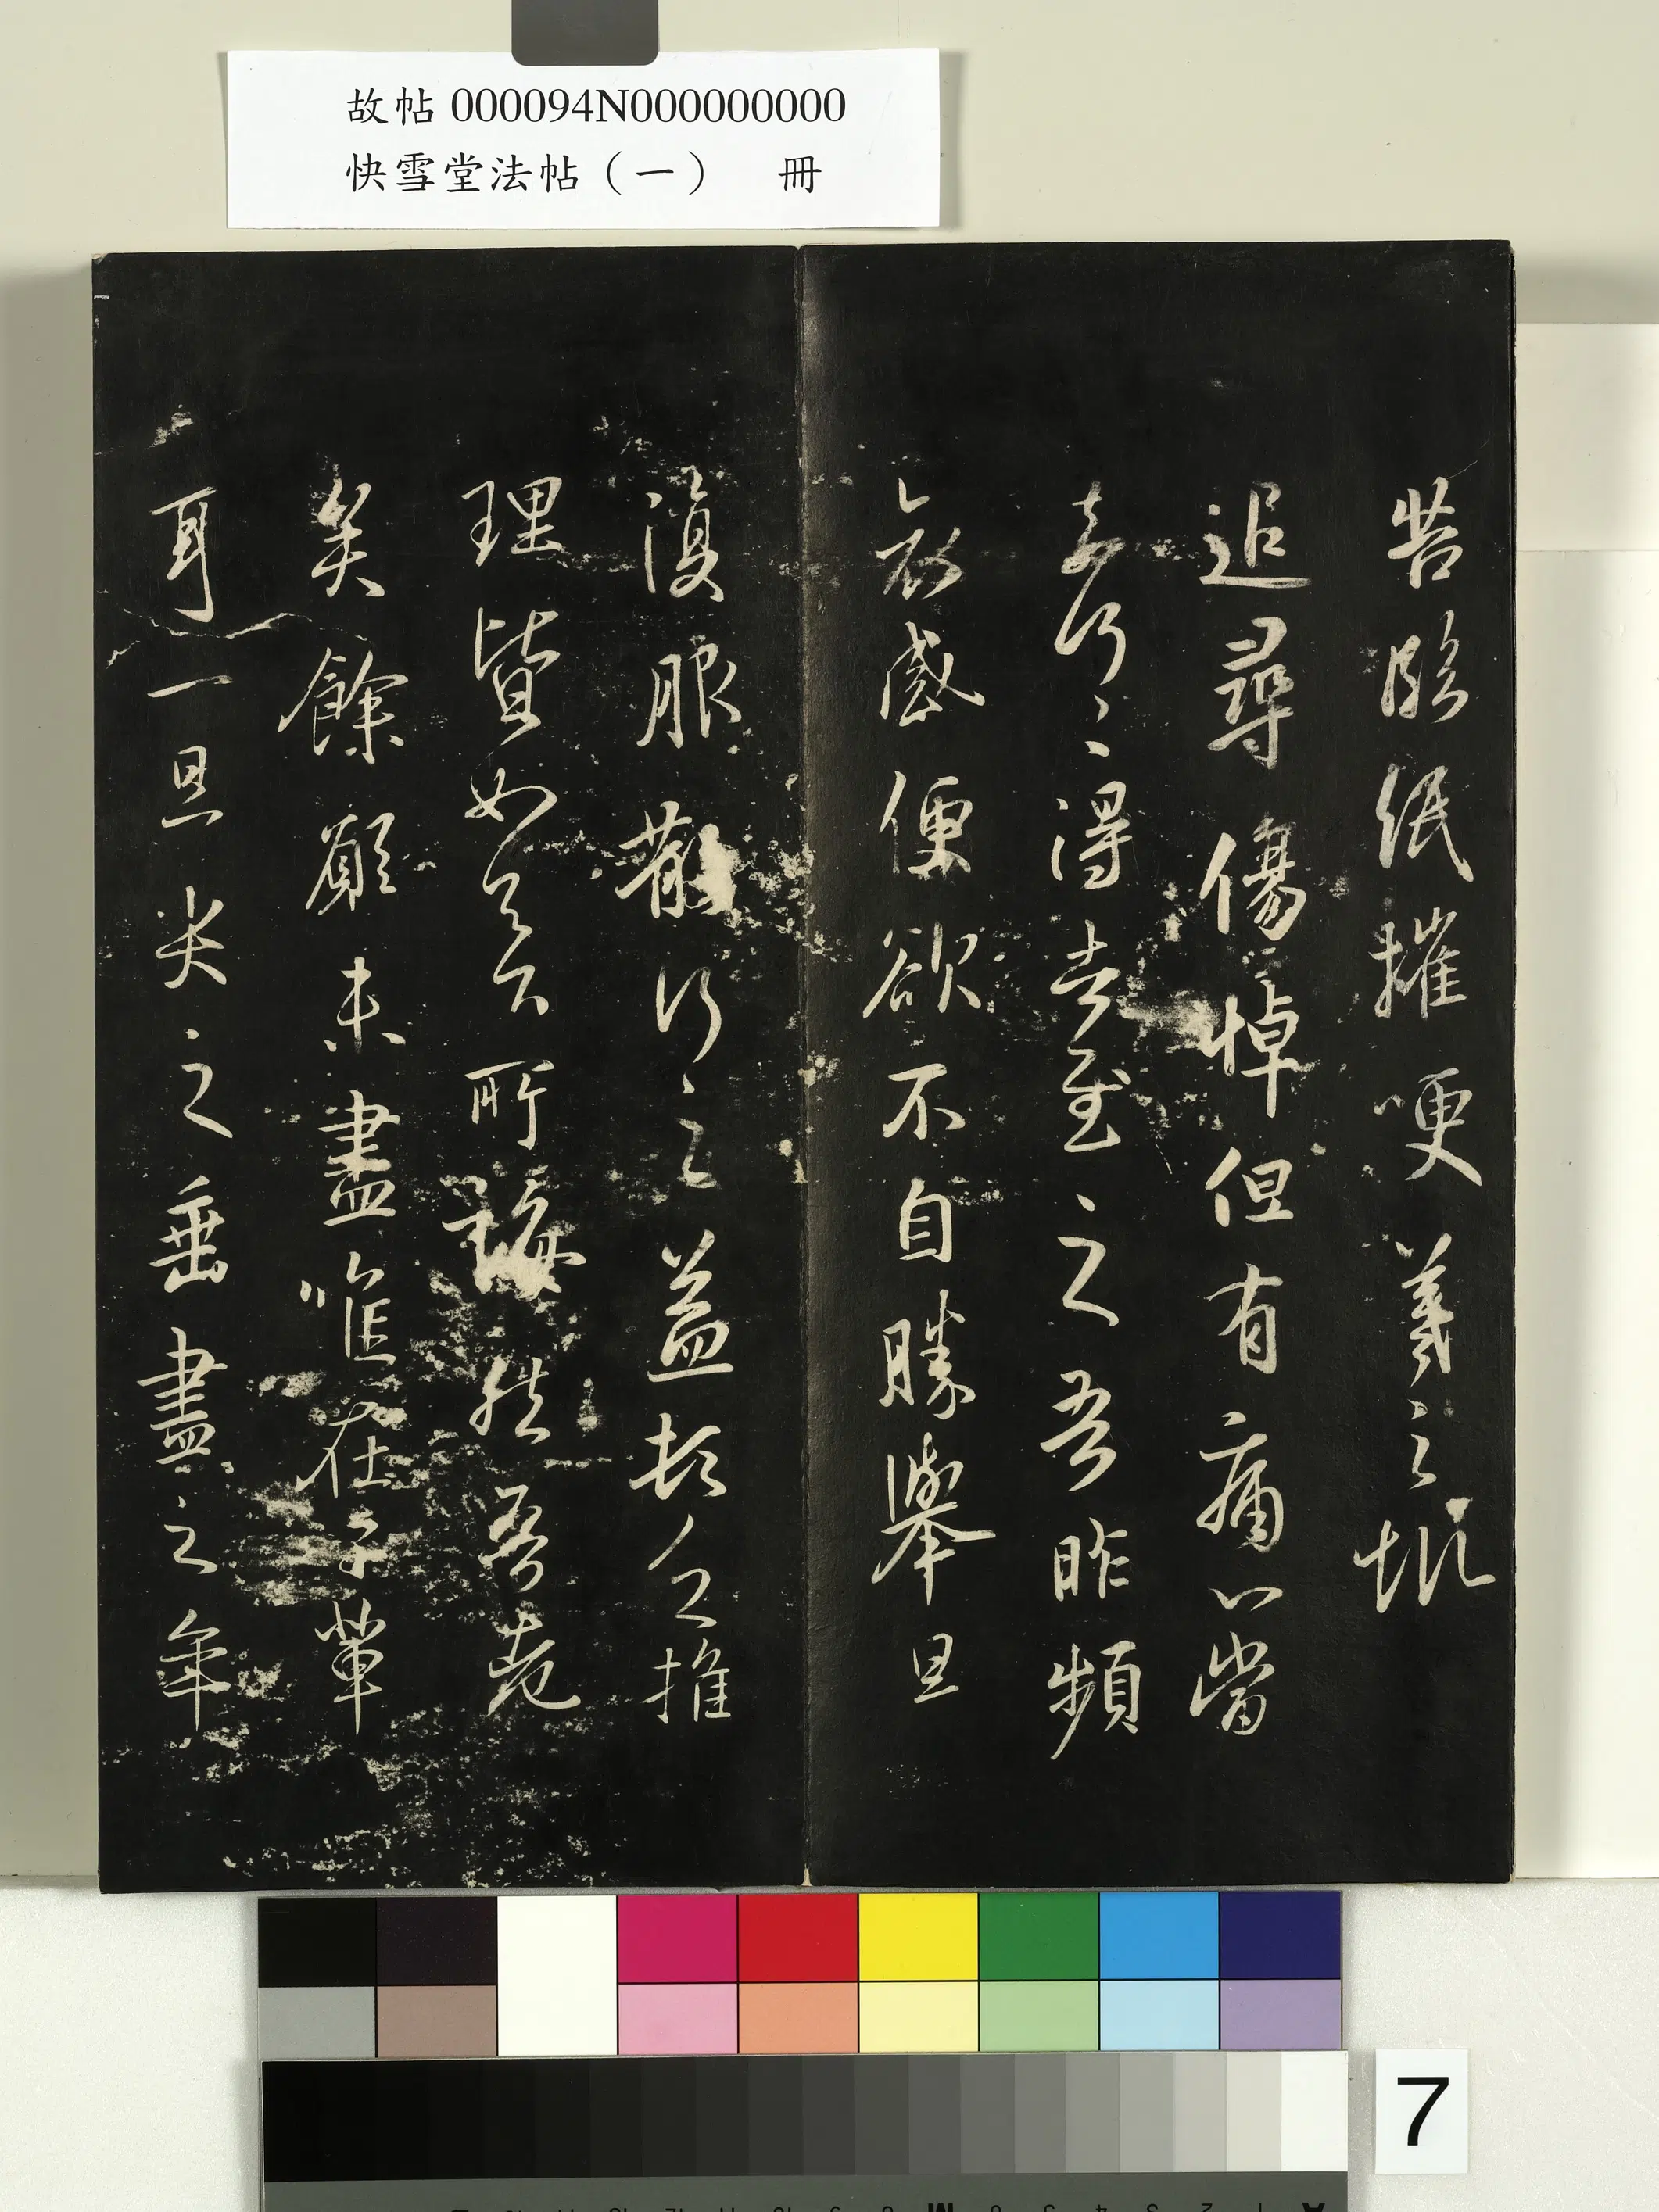 故帖 000094N000000000
快雪堂法帖（一）　冊
苦臨紙摧哽羲之頓首
追尋傷悼但有痛心當
奈何〻〻得告慰之吾昨頻
哀感便欲不自勝舉旦
復服散行之益頓乏推
理皆如足下所誨然吾老
矣餘願未盡唯在子輩
耳一旦哭之垂盡之年
7